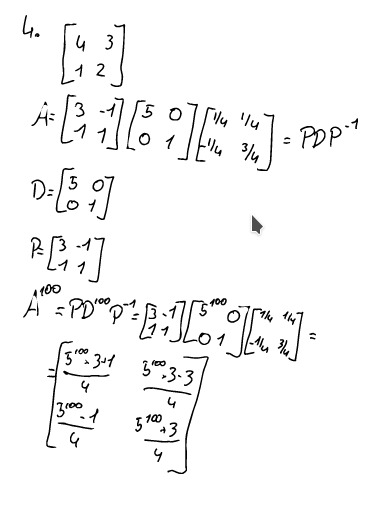 4. [4 3
1 2]
A=[3 -1
1 1] [5 0
0 1] [1/4 1/4
-1/4 3/4] = PDP⁻¹
D=[5 0
0 1]
P=[3 -1
1 1]
A¹⁰⁰=PD¹⁰⁰P⁻¹=[3 -1
1 1] [5¹⁰⁰ 0
0 1] [1/4 1/4
-1/4 3/4] =
=[(5¹⁰⁰·3+1)/4 (5¹⁰⁰·3-3)/4
(3¹⁰⁰-1)/4 (5¹⁰⁰+3)/4]